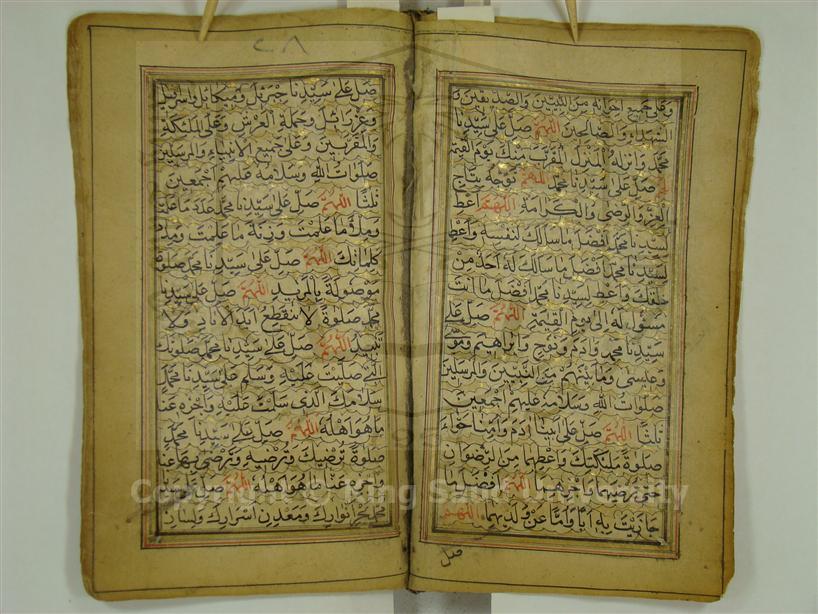 وعلى جميع اخوانه من النبيين والصديقين و
الشهداء والصالحين اللهم صل على سيدنا
محمد وانزله المنزل المقرب منك يوم القيمة
صل على سيدنا محمد اللهم توجه بتاج
العز والرضى والكرامة اللهم اعط
لسيدنا محمد افضل ما سالك لنفسه واعط
لسيدنا محمد افضل ما سالك له احد من
خلقك واعط لسيدنا محمد افضل ما انت
مسؤل له الى يوم القيمة اللهم صل على
سيدنا محمد وادم ونوح وابراهيم وموسى
وعيسى وما بينهم من النبيين والمرسلين
صلوات الله وسلامه عليهم اجمعين
ثلثا اللهم صل على ابينا ادم وامنا حواء
صلوة ملئكتك واعطهما من الرضوان
حتى ترضيهما واجزهما اللهم افضل ما
جازيت به ابا واما عن ولديهما اللهم
صل
٢٨
صل على سيدنا جبرئيل وميكائيل واسرافيل
وعزرائيل وحملة العرش وعلى الملئكة
والمقربين وعلى جميع الانبياء والمرسلين
صلوات الله وسلامه عليهم اجمعين
ثلثا اللهم صل على سيدنا محمد عدد ما علمت
وملأ ما علمت وزنة ما علمت ومداد
كلماتك اللهم صل على سيدنا محمد صلوة
موصولة بالمزيد اللهم صل على سيدنا
محمد صلوة لا تنقطع ابد الاباد ولا
تبيد اللهم صل على سيدنا محمد صلوتك
التى صليت عليه وسلم على سيدنا محمد
سلامك الذى سلمت عليه واجزه عنا
ما هو اهله اللهم صل على سيدنا محمد
صلوة ترضيك وترضيه وترضى بها عنا
واجزه عنا ما هو اهله اللهم صل على سيدنا
محمد بحر انوارك ومعدن اسرارك ولسان
Copyright © King Saud University